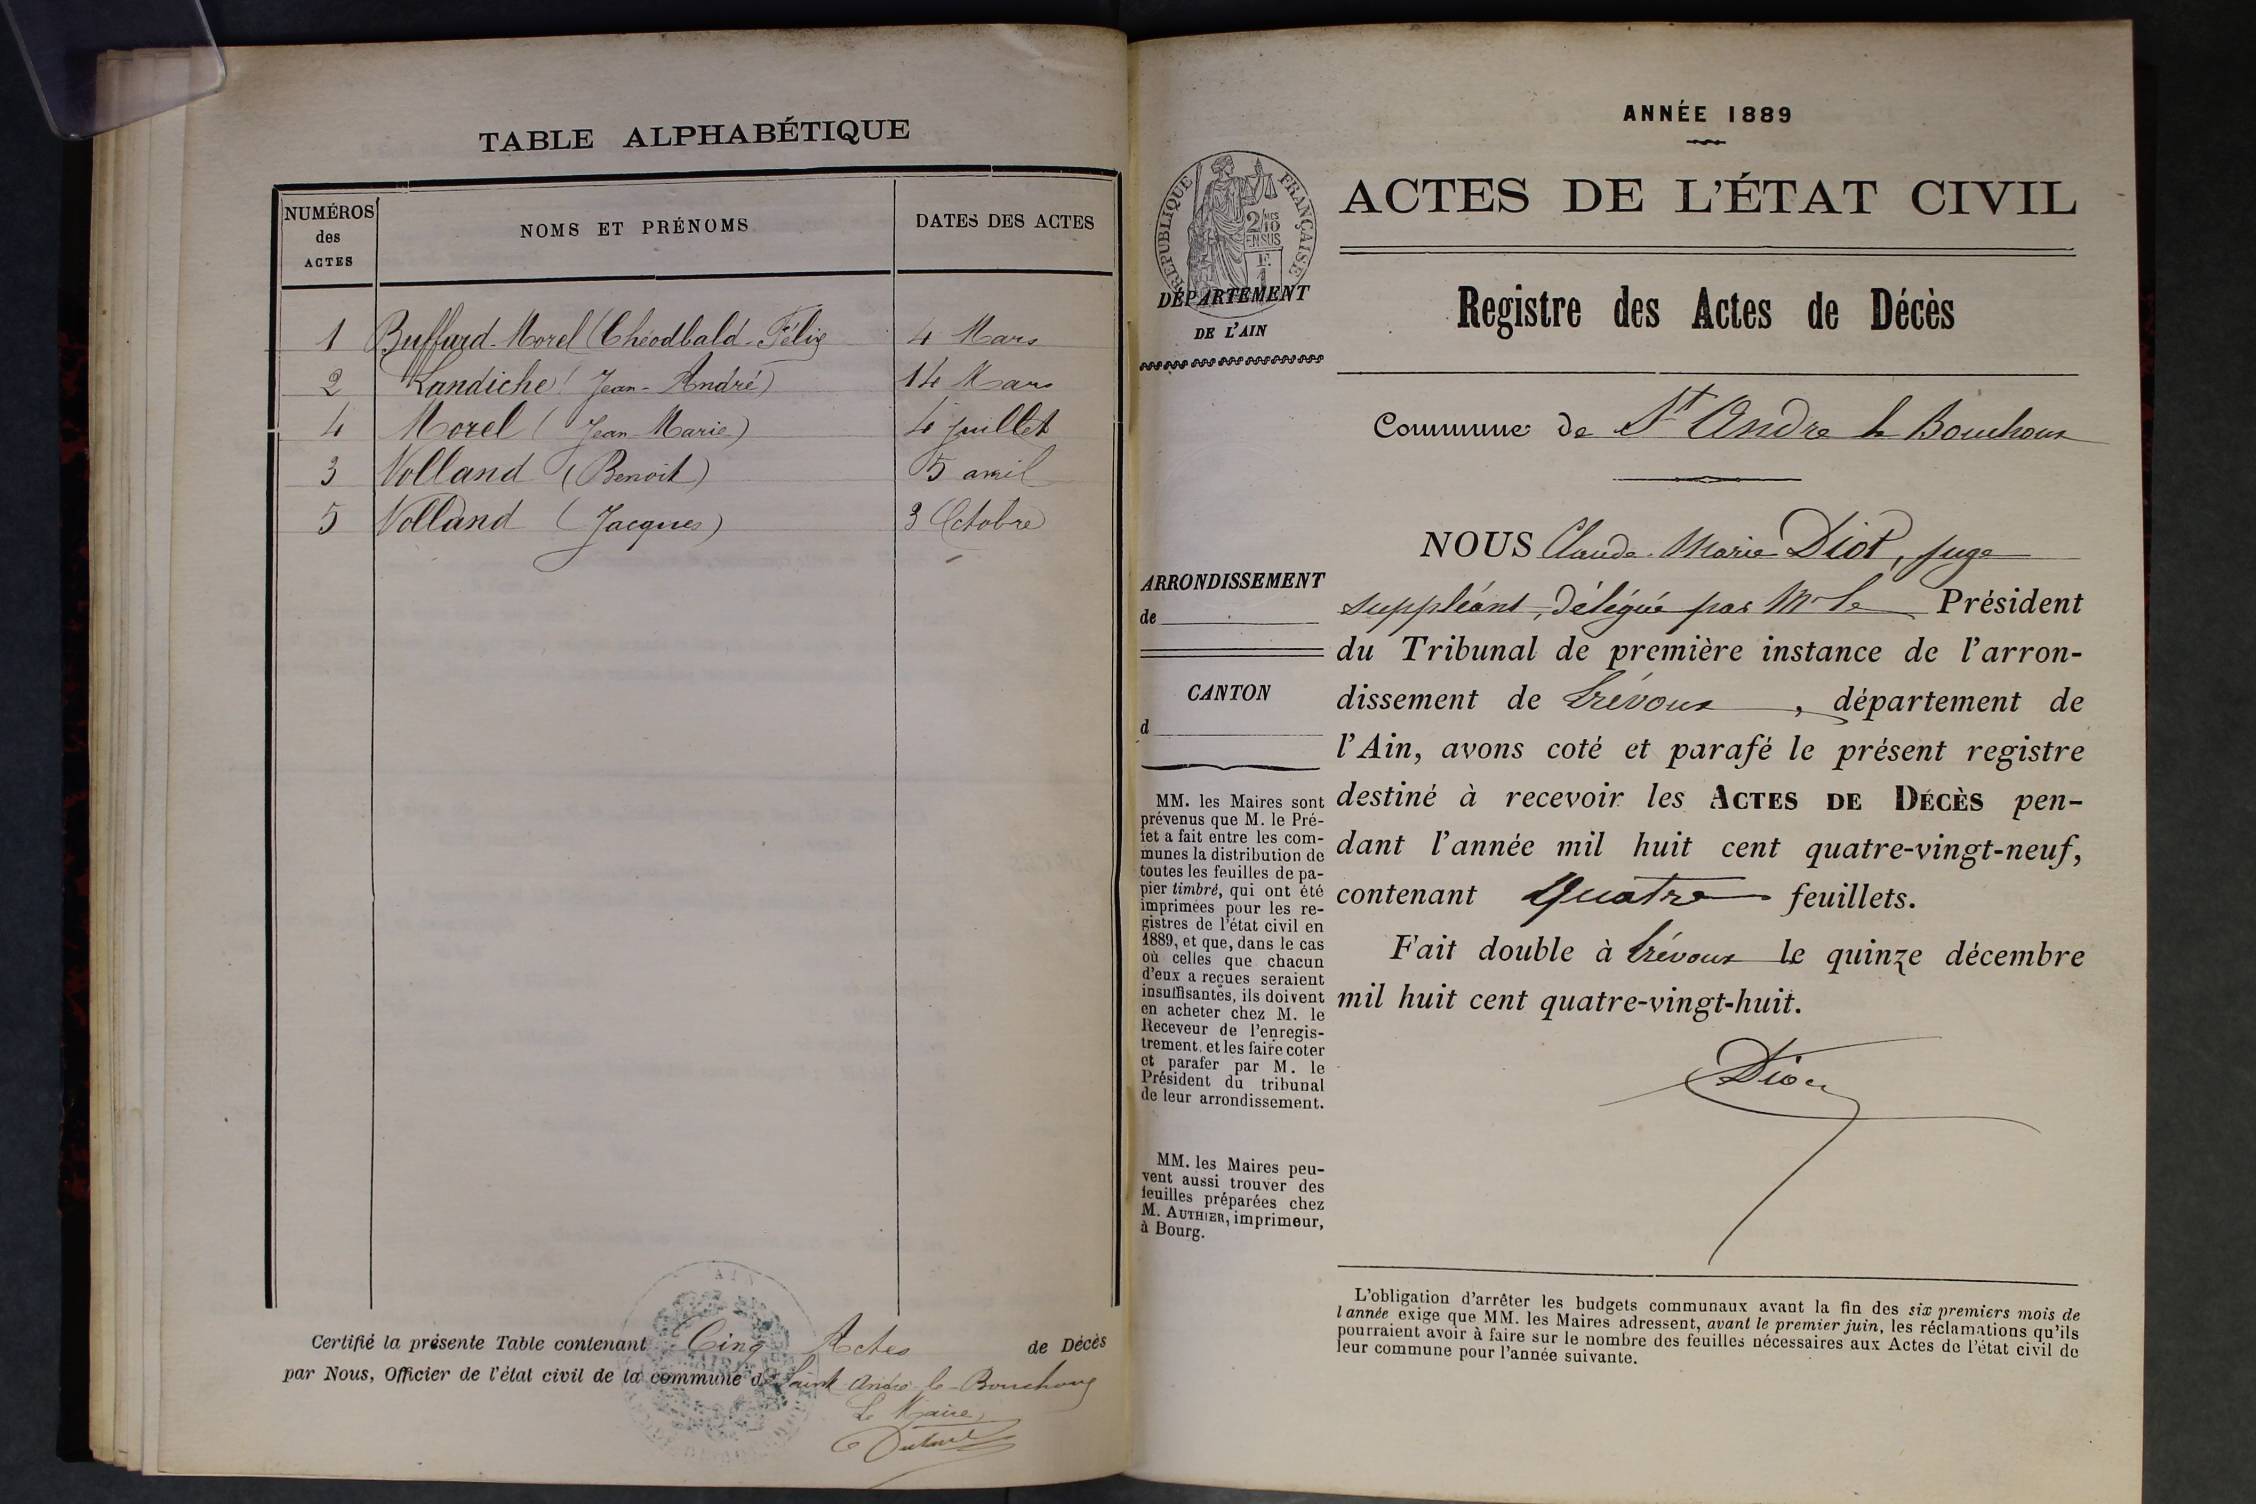 TABLE ALPHABÉTIQUE
NUMÉROS des ACTES
NOMS ET PRÉNOMS
DATES DES ACTES
1 Buffard-Morel (Théodbald-Félix 4 Mars
2 Landiche (Jean-André) 14 Mars
4 Morel (Jean-Marie) 4 juillet
3 Volland (Benoit) 5 avril
5 Volland (Jacques) 3 Octobre
Certifié la présente Table contenant Cinq Actes de Décès
par Nous, Officier de l'état civil de la commune de Saint André le Bouchoux
Le Maire,
ANNÉE 1889
ACTES DE L'ÉTAT CIVIL
Registre des Actes de Décès
RÉPUBLIQUE FRANÇAISE
2/10
EN SUS
F.
1
DÉPARTEMENT
DE L'AIN
Commune de St André le Bouchoux
NOUS Claude Marie Diot, juge
suppléant, délégué par Mr le Président
du Tribunal de première instance de l'arron-
dissement de Trévoux, département de
l'Ain, avons coté et parafé le présent registre
destiné à recevoir les ACTES DE DÉCÈS pen-
dant l'année mil huit cent quatre-vingt-neuf,
contenant quatre feuillets.
Fait double à Trévoux le quinze décembre
mil huit cent quatre-vingt-huit.
Diot
ARRONDISSEMENT
de
CANTON
d
MM. les Maires sont
prévenus que M. le Pré-
fet a fait entre les com-
munes la distribution de
toutes les feuilles de pa-
pier timbré, qui ont été
imprimées pour les re-
gistres de l'état civil en
1889, et que, dans le cas
où celles que chacun
d'eux a reçues seraient
insuffisantes, ils doivent
en acheter chez M. le
Receveur de l'enregis-
trement, et les faire coter
et parafer par M. le
Président du tribunal
de leur arrondissement.
MM. les Maires peu-
vent aussi trouver des
feuilles préparées chez
M. AUTHIER, imprimeur,
à Bourg.
L'obligation d'arrêter les budgets communaux avant la fin des six premiers mois de
l'année exige que MM. les Maires adressent, avant le premier juin, les réclamations qu'ils
pourraient avoir à faire sur le nombre des feuilles nécessaires aux Actes de l'état civil de
leur commune pour l'année suivante.